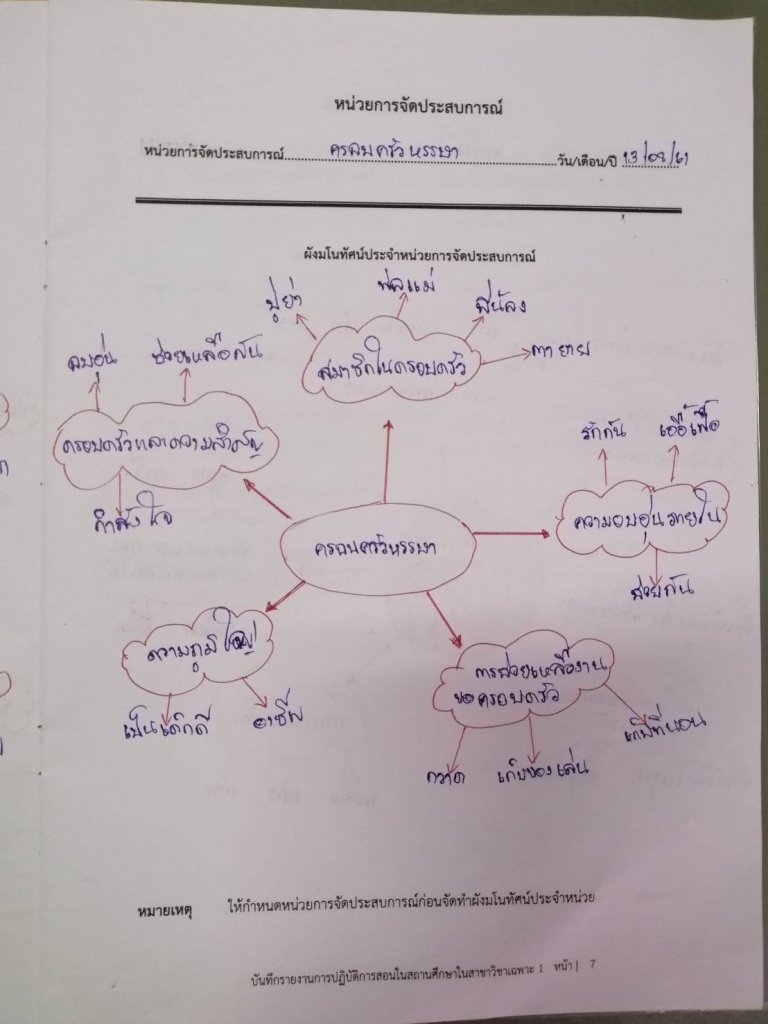 หน่วยการจัดประสบการณ์
หน่วยการจัดประสบการณ์ ครอบครัวหรรษา วัน/เดือน/ปี
ผังมโนทัศน์ประจำหน่วยการจัดประสบการณ์
ปู่ย่า
พ่อแม่
พี่น้อง
ตายาย
สมาชิกในครอบครัว
อบอุ่น
ช่วยเหลือกัน
ครอบครัวและความสำคัญ
กำลังใจ
รักกัน
เอื้อเฟื้อ
ความอบอุ่นภายใน
ช่วยกัน
ครอบครัวหรรษา
ความภูมิใจ
เป็นเด็กดี
อาชีพ
การช่วยเหลืองาน
ขอครอบครัว
กวาด
เก็บของเล่น
เก็บที่นอน
หมายเหตุ ให้กำหนดหน่วยการจัดประสบการณ์ก่อนจัดทำผังมโนทัศน์ประจำหน่วย
บันทึกรายงานการปฏิบัติการสอนในสถานศึกษาในสาขาวิชาเฉพาะ 1 หน้า | 7